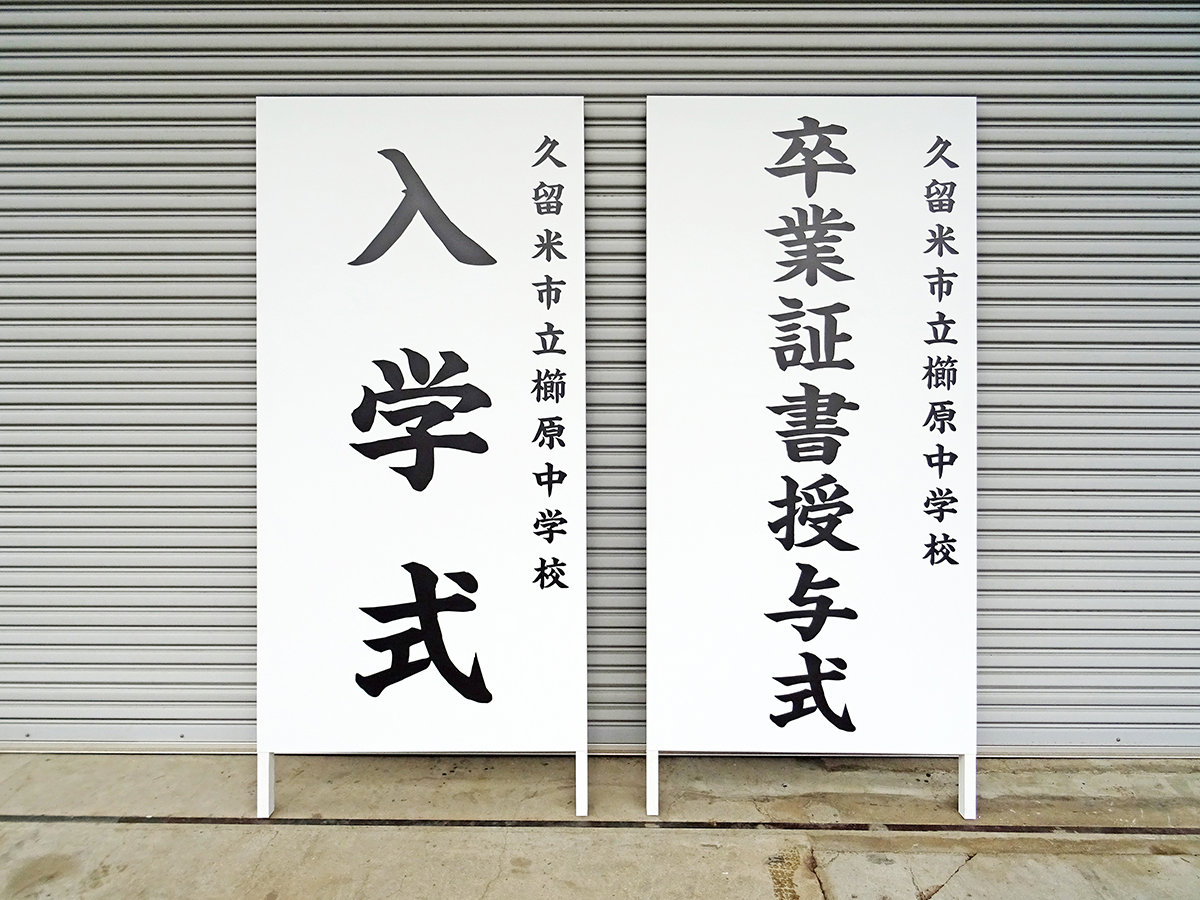 久留米市立櫛原中学校
卒業証書授与式
久留米市立櫛原中学校
入学式